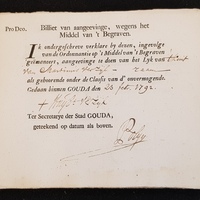 Pro Deo. Billiet van aangeevinge, wegens het
Middel van 't Begraven.
Ik ondergeschreve verklare by desen, ingevolge
van de Ordonnantie op 't Middel van 't Begraven
geëmaneert, aangeevinge te doen van het Lyk van
van
als gehoorende onder de Classis van d' onvermogende.
Gedaan binnen GOUDA den 26 feb. 1792.
Ter Secretarye der Stad GOUDA,
geteekend op datum als boven.